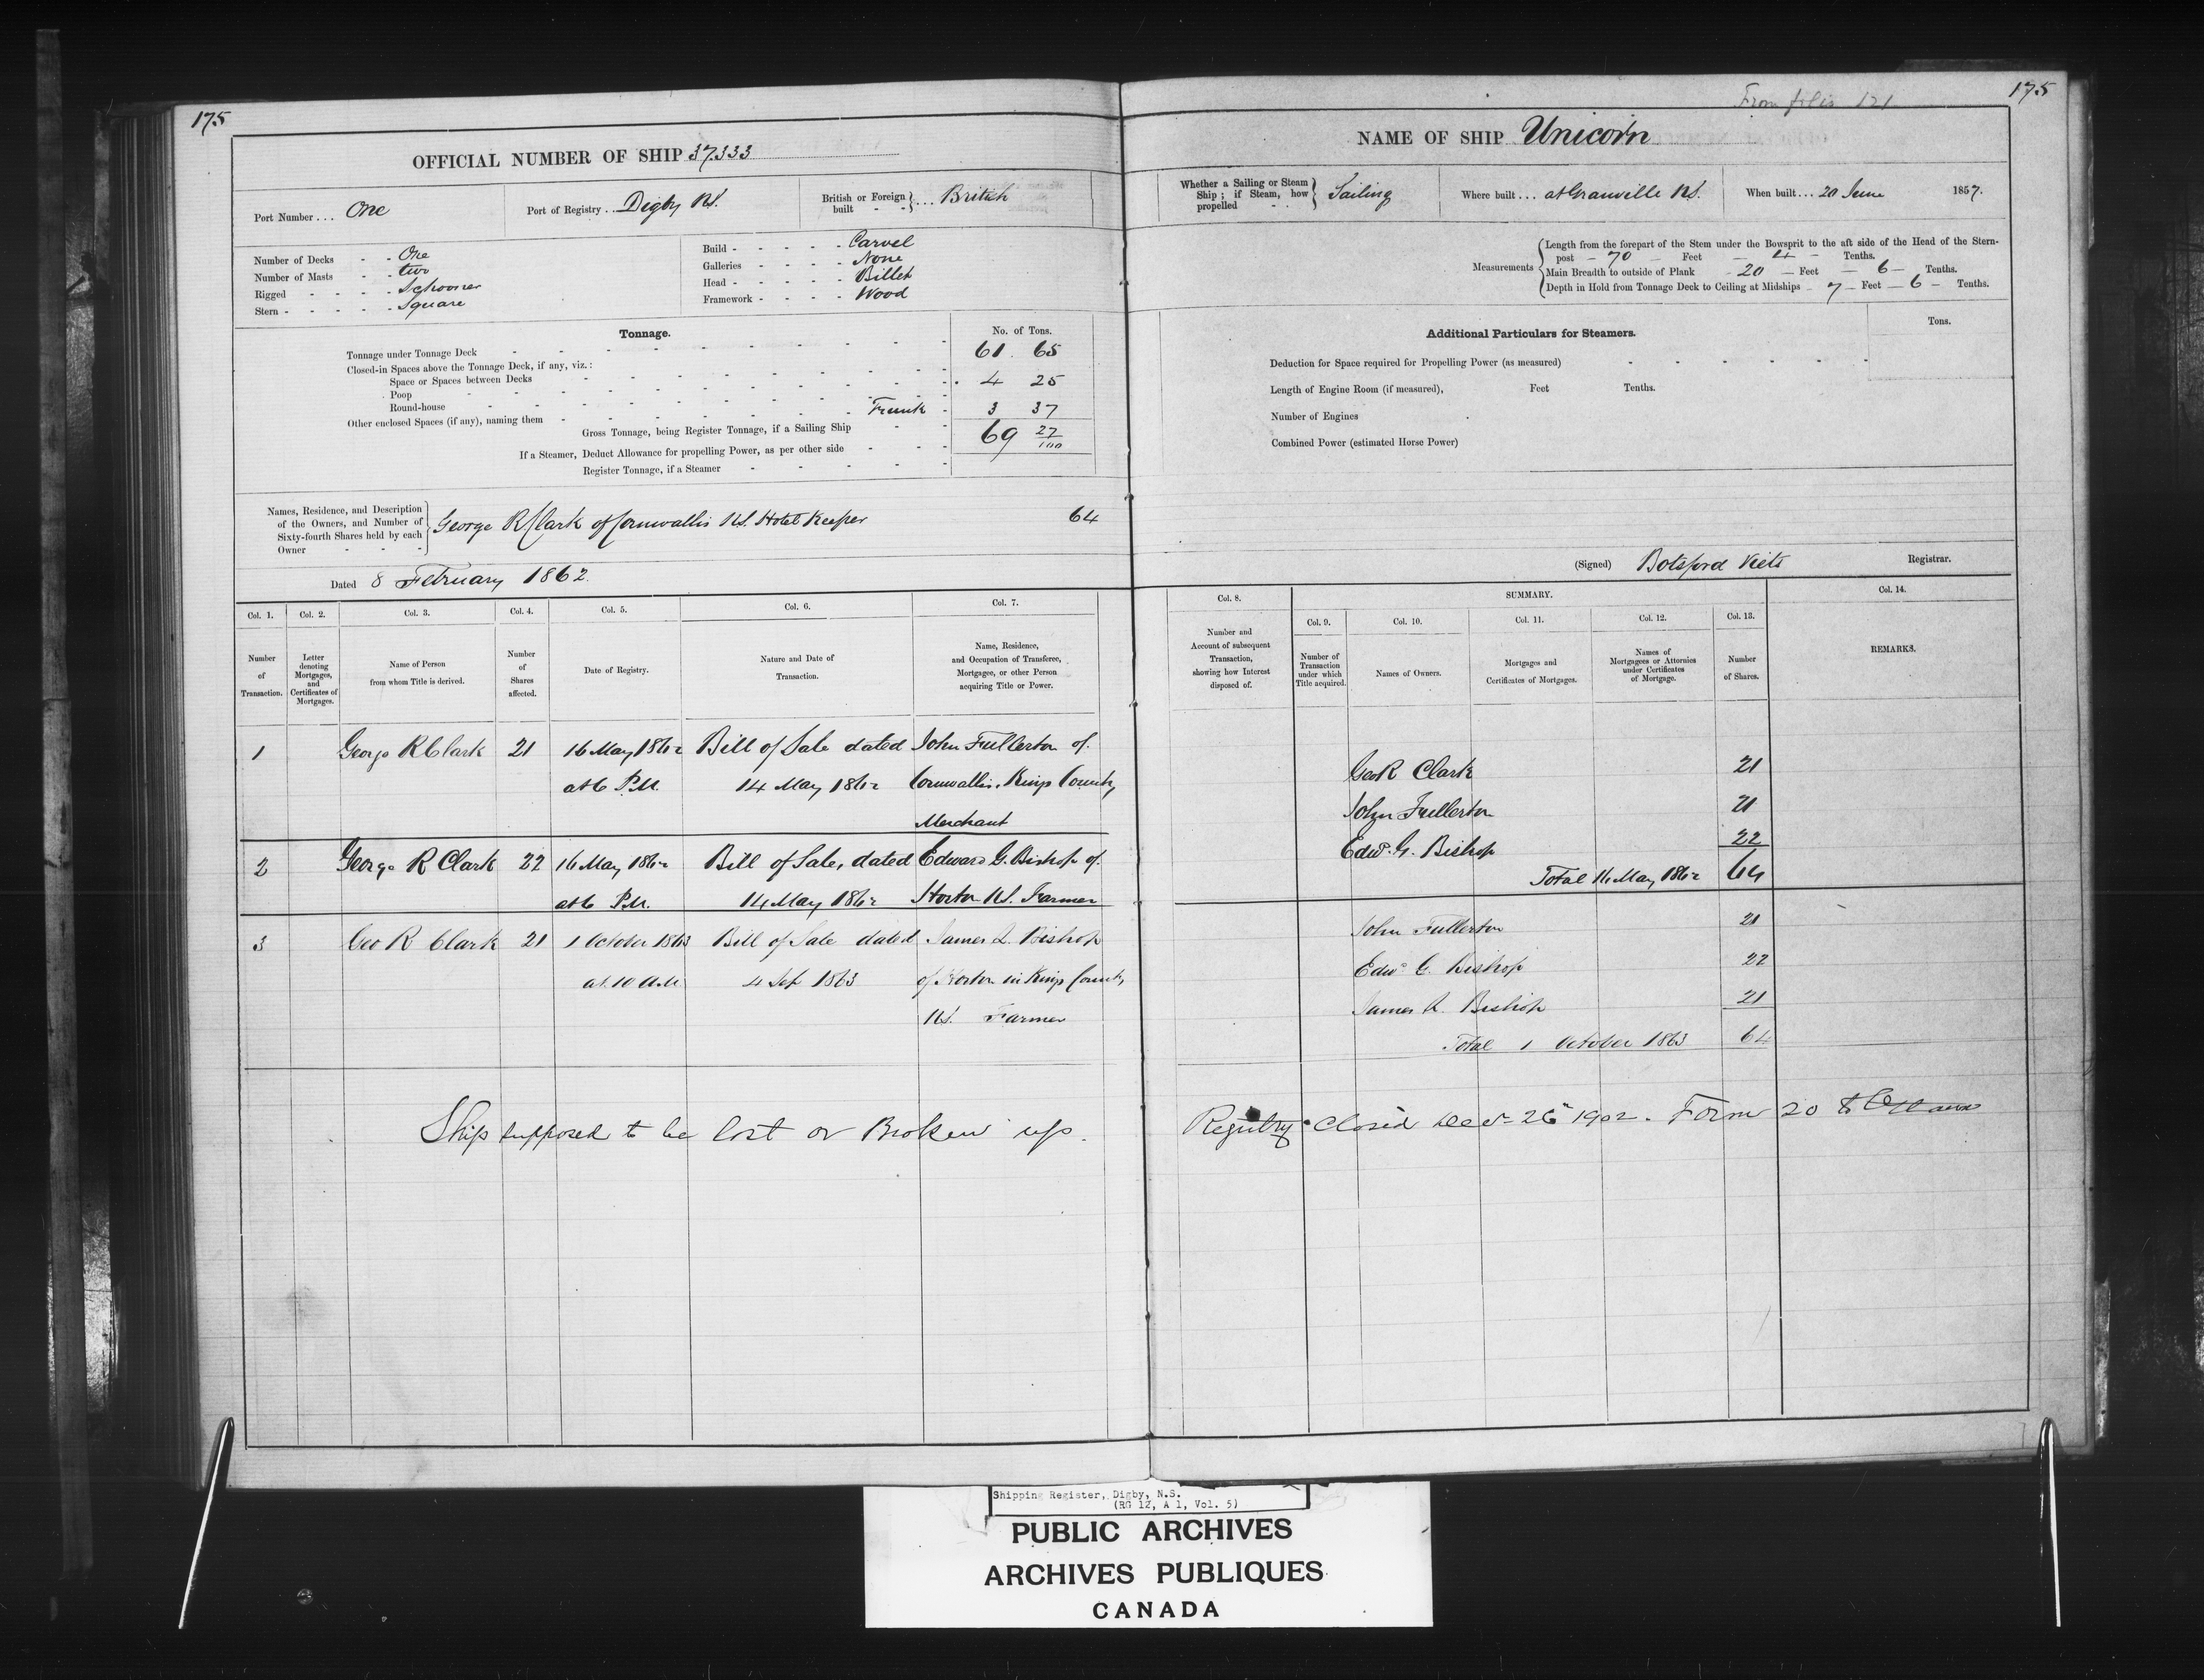 175
OFFICIAL NUMBER OF SHIP 37.333
Port Number . . . One
Port of Registry . . Digby N.S.
British or Foreign built . . . British
Number of Decks - - One
Number of Masts - - two
Rigged - - - - Schooner
Stern - - - - - Square
Build - - - - - Carvel
Galleries - - - - None
Head - - - - - Billet
Framework - - - - Wood
Tonnage.
No. of Tons.
Tonnage under Tonnage Deck 61. 65
Closed-in Spaces above the Tonnage Deck, if any, viz.:
Space or Spaces between Decks
Poop 4 25
Round-house
Other enclosed Spaces (if any), naming them Trunk - 3 37
Gross Tonnage, being Register Tonnage, if a Sailing Ship 69 27/100
If a Steamer, Deduct Allowance for propelling Power, as per other side
Register Tonnage, if a Steamer
Names, Residence, and Description
of the Owners, and Number of
Sixty-fourth Shares held by each
Owner
George R Clark of Cornwallis N.S. Hotel Keeper 64
Dated 8 February 1862.
Col. 1. Col. 2. Col. 3. Col. 4. Col. 5. Col. 6. Col. 7.
Number of Transaction.
Letter denoting Mortgages, and Certificates of Mortgages.
Name of Person from whom Title is derived.
Number of Shares affected.
Date of Registry.
Nature and Date of Transaction.
Name, Residence, and Occupation of Transferee, Mortgagee, or other Person acquiring Title or Power.
1 George R Clark 21 16 May 1862 Bill of Sale dated John Fullerton of
at 6 P.M. 14 May 1862 Cornwallis, Kings County,
Merchant
2 George R Clark 22 16 May 1862 Bill of Sale, dated Edward G. Bishop of
at 6 P.M. 14 May 1862 Horton N.S. Farmer
3 Geo R Clark 21 1 October 1863 Bill of Sale dated James L. Bishop
at 10 A.M 4 Sep 1863 of Horton in Kings County
N.S. Farmer
Ship supposed to be lost or Broken up.
From folio 121
175
NAME OF SHIP Unicorn
Whether a Sailing or Steam Ship; if Steam, how propelled Sailing
Where built . . . at Granville N.S.
When built . . . 20 June 1857.
Measurements
Length from the forepart of the Stem under the Bowsprit to the aft side of the Head of the Stern-
post - 70 - Feet - 4 - Tenths.
Main Breadth to outside of Plank - 20 - Feet - 6 - Tenths.
Depth in Hold from Tonnage Deck to Ceiling at Midships - 7 - Feet - 6 - Tenths.
Additional Particulars for Steamers.
Tons.
Deduction for Space required for Propelling Power (as measured)
Length of Engine Room (if measured), Feet Tenths.
Number of Engines
Combined Power (estimated Horse Power)
(Signed) Botsford Viets Registrar.
Col. 8. SUMMARY. Col. 14.
Col. 9. Col. 10. Col. 11. Col. 12. Col. 13.
Number and Account of subsequent Transaction, showing how Interest disposed of.
Number of Transaction under which Title acquired.
Names of Owners.
Mortgages and Certificates of Mortgages.
Names of Mortgagees or Attornies under Certificates of Mortgage.
Number of Shares.
REMARKS.
Geo R Clark 21
John Fullerton 21
Edwd. G. Bishop 22
Total 16 May 1862 64
John Fullerton 21
Edwd G. Bishop 22
James L. Bishop 21
Total 1 October 1863 64
Registry Closed Decr 26th 1902. Form 20 to Ottawa
Shipping Register, Digby, N.S.
(RG 12, A 1, Vol. 5)
PUBLIC ARCHIVES
ARCHIVES PUBLIQUES
CANADA